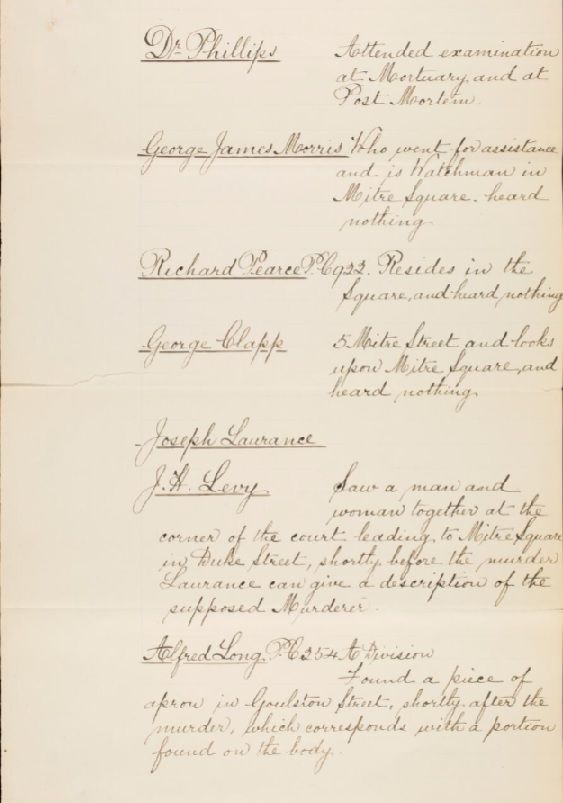 Dr. Phillips Attended examination
at Mortuary, and at
Post Mortem.
George James Morris Who went for assistance
and is Watchman in
Mitre Square. heard
nothing
Richard Pearce P.C. 922. Resides in the
Square, and heard nothing
George Clapp 5 Mitre Street and looks
upon Mitre Square, and
heard nothing.
Joseph Laurance
J. H. Levy. Saw a man and
woman together at the
corner of the court leading, to Mitre Square
in, Duke Street, shortly before the murder
Laurance can give a description of the
supposed Murderer.
Alfred Long, P.C. 254 A Division
Found a piece of
apron in Goulston Street, shortly after the
murder, which corresponds with a portion
found on the body.